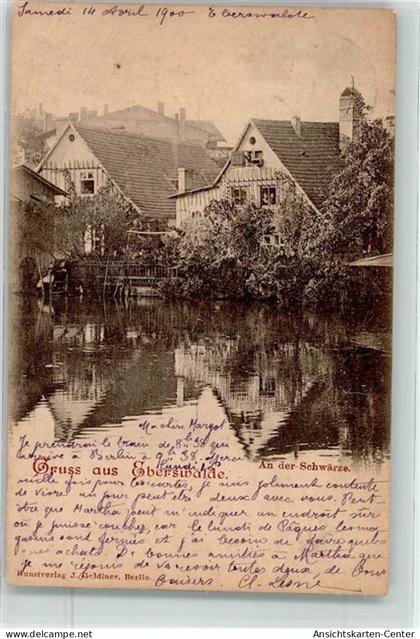 Samedi 14 Avril 1900 Eberswalde
Ma chère Margot
Je prendrai le train de 8.h 38 qui
arrive à 9.h 38. Merci
Gruss aus Eberswalde. lundi
An der Schwärze.
mille fois pour les cartes, je suis joliment contente
de vivre un jour peut être deux avec vous. Peut
être que Martha peut m'indiquer un endroit sur
où je puisse coucher, car le lundi de Pâques les mag.
sont fermés et j'ai besoin de faire quelques
achats. De bonnes amitiés à Martha que
je me réjouis de vous voir toutes deux, de bons
Kunstverlag J. Goldiner, Berlin. baisers
Ansichtskarten-Center